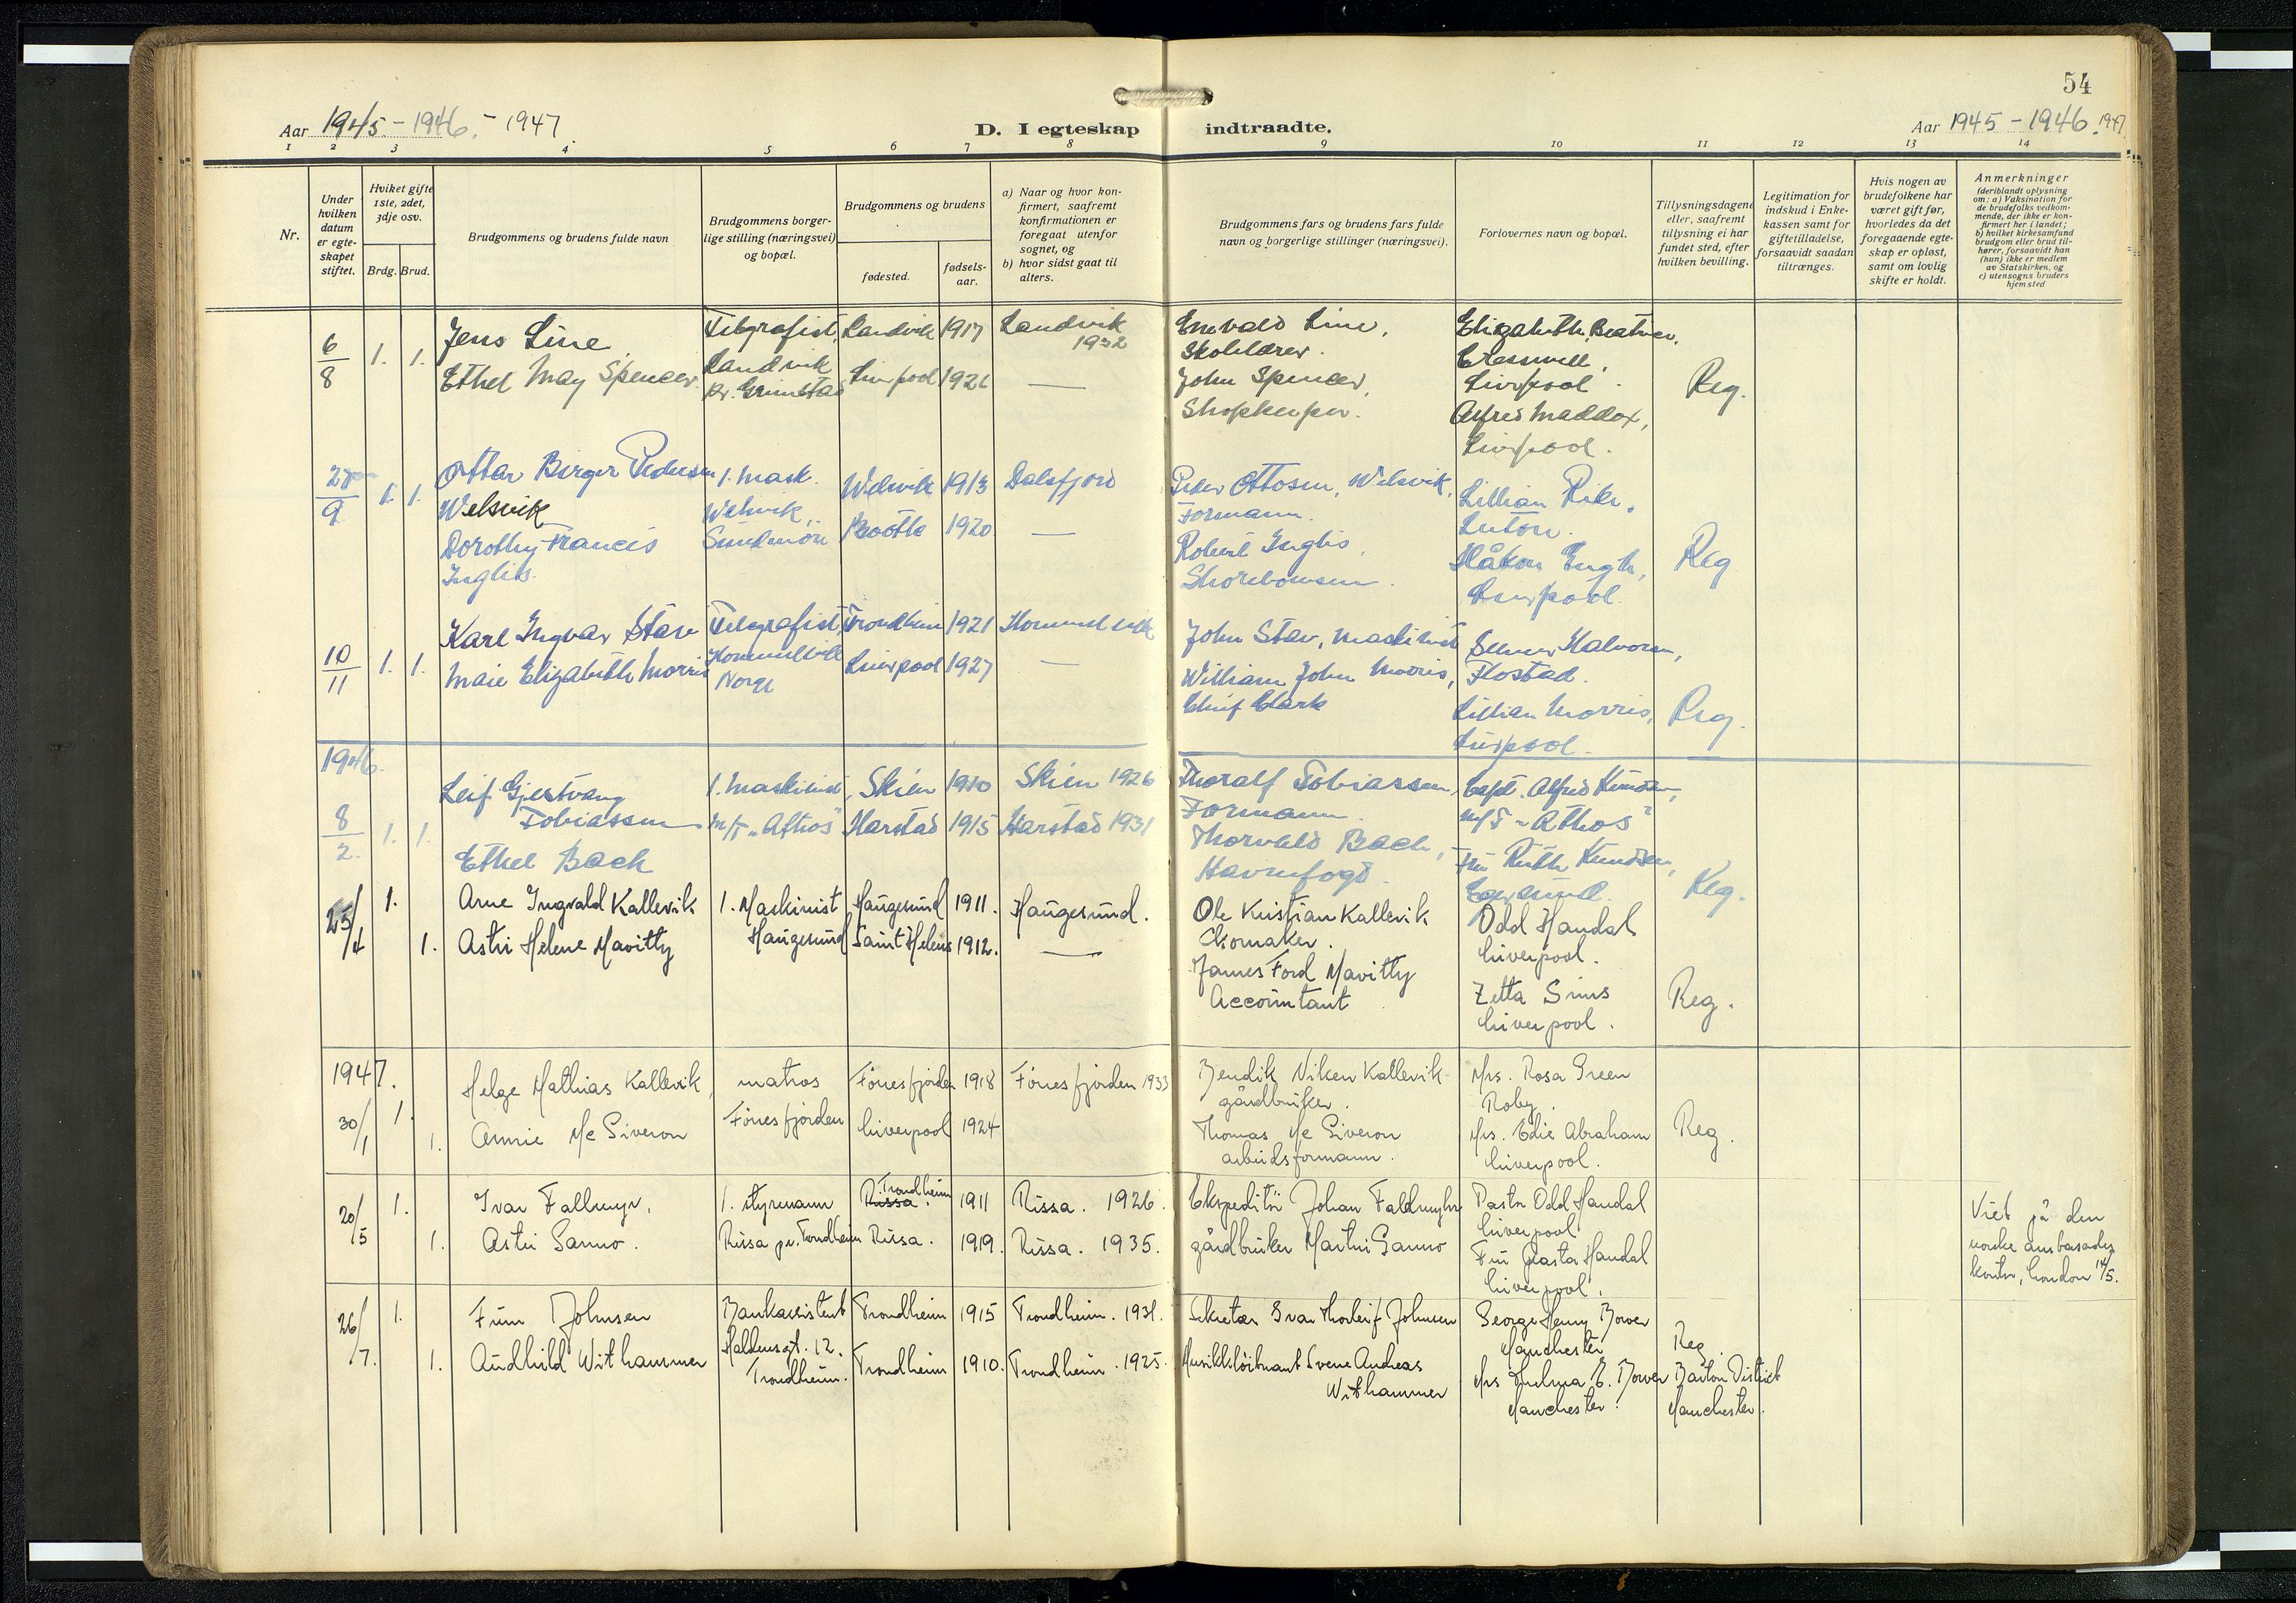 54
Aar 1945 - 1946. - 1947
D. I egteskap indtraadte.
Aar 1945 - 1946. 1947
1 2 3 4 5 6 7 8 9 10 11 12 13 14
Nr.
Under hvilken datum er egte- skapet stiftet.
Hviket gifte 1ste, 2det, 3dje osv.
Brdg. Brud.
Brudgommens og brudens fulde navn
Brudgommens borger- lige stilling (næringsvei) og bopæl.
Brudgommens og brudens
fødested.
fødsels- aar.
a) Naar og hvor kon- firmert, saafremt konfirmationen er foregaat utenfor sognet, og
b) hvor sidst gaat til alters.
Brudgommens fars og brudens fars fulde navn og borgerlige stillinger (næringsvei).
Forlovernes navn og bopæl.
Tillysningsdagene eller, saafremt tillysning ei har fundet sted, efter hvilken bevilling.
Legitimation for indskud i Enke- kassen samt for giftetilladelse, forsaavidt saadan tiltrænges.
Hvis nogen av brudefolkene har været gift før, hvorledes da det foregaaende egte- skap er opløst, samt om lovlig skifte er holdt.
Anmerkninger
(deriblandt oplysning om: a) Vaksination for de brudefolks vedkom- mende, der ikke er kon- firmert her i landet; b) hvilket kirkesamfund brudgom eller brud til- hører, forsaavidt han (hun) ikke er medlem av Statskirken, og c) utensogns bruders hjemsted
6/8 1. 1.
Jens Line
Ethel May Spencer
Telegrafist,
Landvik
pr. Grimstad
Landvik 1917
Liverpool
Landvik
1932
—
Line,
John Spencer,
Shopkeeper.
Elizabeth Beatrice
Liverpool.
Alfred Maddox,
Liverpool.
Reg.
9 1. 1.
Ottar Birger Pedersen
Welsvik
Dorothy Francis
Inglis
1. mask.
Welsvik,
Welsvik 1913
Bootle 1920
Dalsfjord
—
Peder Ottosen, Welsvik,
Formann.
Robert Inglis,
Lillian
Luton.
Håkon Engh,
Liverpool.
Reg
10/11 1. 1.
Karl Ingvar
Elizabeth Morris
Telegrafist,
Hommelvik
Norge
Trondheim 1921
Liverpool 1927
Hommelvik
—
John Stav, maskinist
William John Morris,
Chief Clark
Halvorsen,
Flostad.
Lillian Morris,
Liverpool.
Reg.
1946.
8/2. 1. 1.
Leif Gjestvang
Tobiassen
Ethel Bach
1. maskinist,
m/T "Athos"
Skien 1910
Harstad 1915
Skien 1926
Harstad 1931
Thoralf Tobiassen,
Formann.
Thorvald Bach,
Havnefogd.
Capt. Alfred Knudsen,
m/T "Athos"
Fru Ruth Knudsen,
Egersund.
Reg.
25/4 1. 1.
Arne Ingvald Kallevik
Astri Helene Mavitty
1. Maskinist
Haugesund
Haugesund 1911.
Saint Helens 1912.
Haugesund.
—
Ole Kristian Kallevik
Skomaker.
James Ford Mavitty
Accountant
Odd Handal
Liverpool.
Zetta Sims
Liverpool.
Reg.
1947.
30/1 1. 1.
Helge Mathias Kallevik,
Annie Mc Siveron
matros
Førresfjorden
Førresfjorden 1918
Liverpool 1924
Førresfjorden 1933
Bendik Viken Kallevik
gårdbruker.
Thomas Mc Siveron
arbeidsformann.
Mrs. Rosa Green
Roby.
Mrs. Edie Abraham
Liverpool.
Reg.
20/5 1. 1.
Ivar Fallmyr.
Astri Sanno.
1. styrmann
Rissa pr. Trondheim
Trondheim
Rissa. 1911
Rissa. 1919.
Rissa. 1926.
Rissa. 1935.
Ekspeditør Johan Faldmyhr
gårdbruker Martin Sanno
Pastor Odd Handal
Liverpool.
Fru Handal
Liverpool.
Viet på den
norske ambasades
kontor, London 14/5.
26/7. 1. 1.
Finn Johnsen
Audhild Withammer
Bankassistent
Haldensgt. 12.
Trondheim.
Trondheim 1915
Trondheim 1910.
Trondheim. 1931.
Trondheim. 1925.
Sekretær Ivar Thorleif Johnsen
Musikkløitnant Svene Andreas
Withammer
George Henry Bower
Manchester
Mrs Thelma E. Bower
Manchester.
Reg.
Barton District
Manchester.